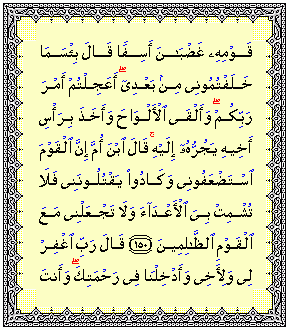 قَوْمِهِۦ غَضْبَٰنَ أَسِفًا قَالَ بِئْسَمَا
خَلَفْتُمُونِى مِنۢ بَعْدِىٓ ۖ أَعَجِلْتُمْ أَمْرَ
رَبِّكُمْ ۖ وَأَلْقَى ٱلْأَلْوَاحَ وَأَخَذَ بِرَأْسِ
أَخِيهِ يَجُرُّهُۥٓ إِلَيْهِ ۚ قَالَ ٱبْنَ أُمَّ إِنَّ ٱلْقَوْمَ
ٱسْتَضْعَفُونِى وَكَادُوا۟ يَقْتُلُونَنِى فَلَا
تُشْمِتْ بِىَ ٱلْأَعْدَآءَ وَلَا تَجْعَلْنِى مَعَ
ٱلْقَوْمِ ٱلظَّٰلِمِينَ ١٥٠ قَالَ رَبِّ ٱغْفِرْ
لِى وَلِأَخِى وَأَدْخِلْنَا فِى رَحْمَتِكَ ۖ وَأَنتَ